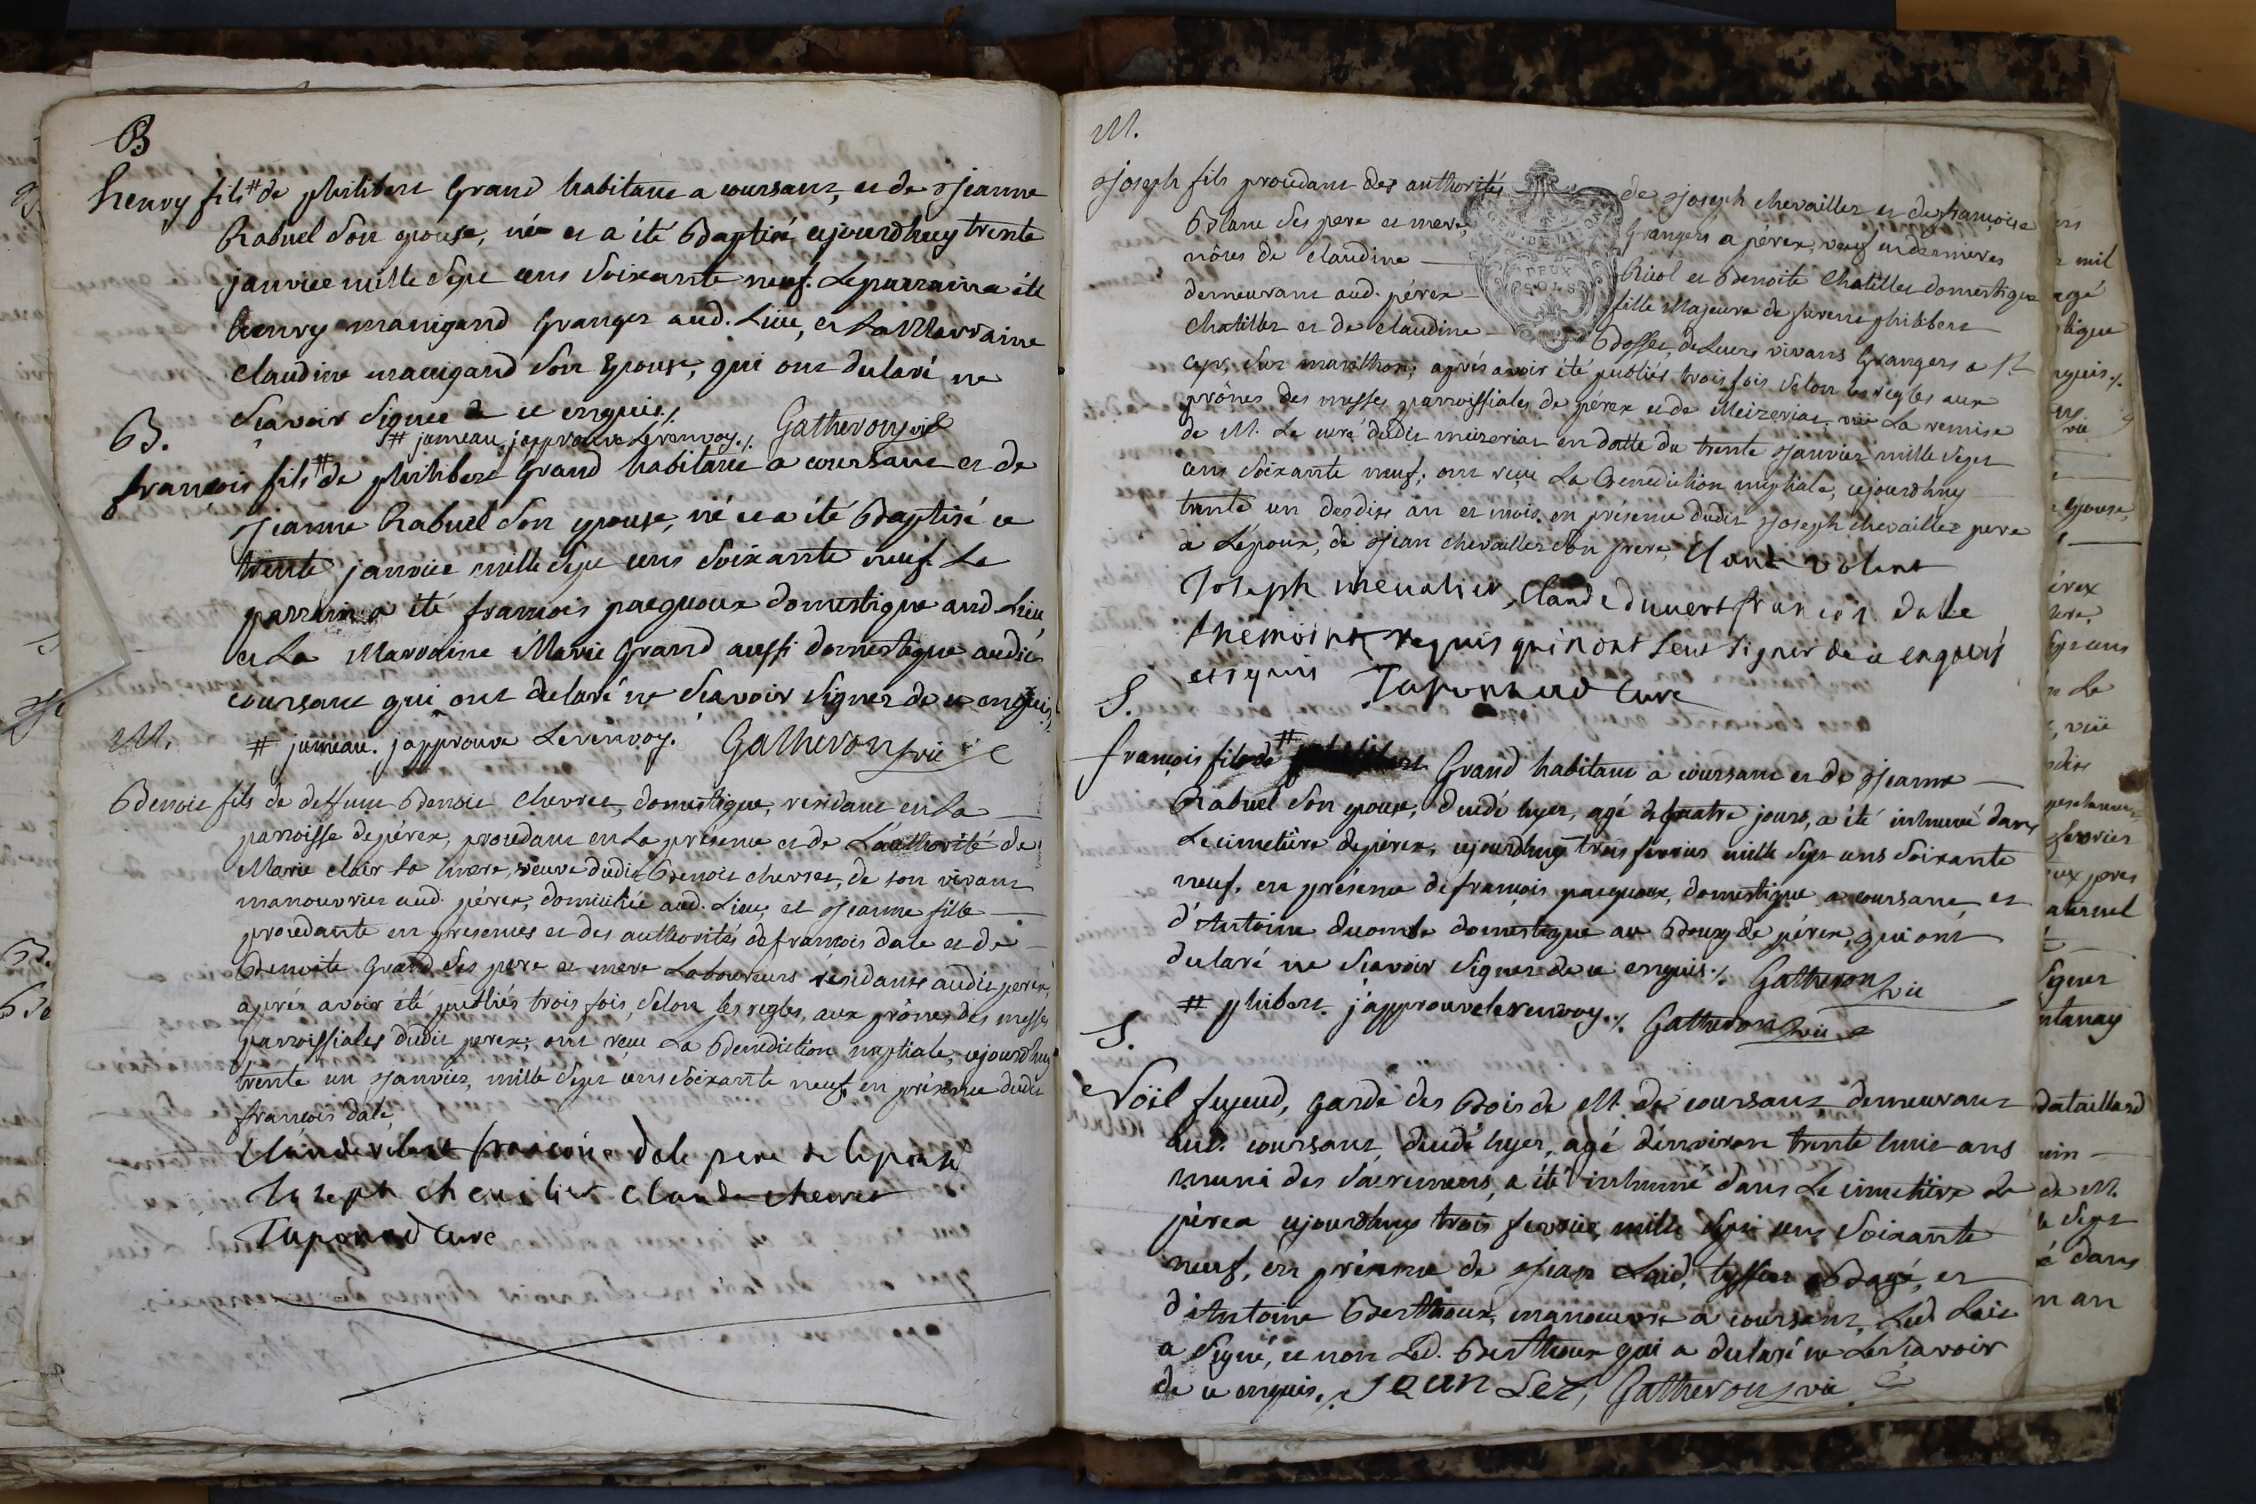 B
henry fils # de philibert Grand habitant a coursant, et de Jeanne
Rabuel son epouse, né et a été Baptisé cejourdhuy trente
janvier mille sept cens soixante neuf. Le parrain a été
henry manigand Granger aud. Lieu, et La Marraine
claudine manigand son Epouse, qui ont declaré ne
sçavoir signer de ce enquis ./.
# jumeau, japprouve Le renvoy ./. Gatheron vic
B.
françois fils # de philibert Grand habitant a coursant et de
Jeanne Rabuel son epouse, né et a été Baptisé ce
trente janvier mille sept cens soixante neuf. Le
parrain a été françois pacquoux domestique aud. Lieu
et La Marraine Marie Grand aussi domestique audit
coursant qui ont declaré ne sçavoir signer de ce enquis ./.
# jumeau. japprouve Le renvoy. Gatheron vic
M.
Benoit fils de deffunt Benoit chevret, domestique, residant en La
paroisse de pérex, procedant en La présence et de L'authorité de
Marie clair sa mere, veuve dudit Benoit chevret, de son vivant
manouvrier aud. pérex, domiciliée aud. Lieu, et Jeanne fille
procedante en presences et des authorités de françois dale et de
Benoite Grand ses pere et mere Laboureurs résidants audit perex,
après avoir été publiés trois fois, selon les regles, aux prônes des messes
parroissiales dudit perex; ont reçue La Benediction nuptiale, cejourdhuy
trente un Janvier, mille sept cens soixante neuf, en présence dudit
françois dale,
Claude volant françois dale pere de lepouse
Joseph chevalier claude chevret
Taponnad Curé
M.
Joseph fils procedant des authorités de Joseph chevaillier et de françoise
Blanc ses pere et mere, Grangers a pérex, veuf en dernieres
nôces de claudine Ricol et Benoite Chatillet domestique
demeurant aud. pérex fille Majeure de furent philibert
Chatillet et de claudine Bossec, de Leurs vivans Grangers a St
cyr, sur manthon; après avoir été publiés trois fois selon les regles aux
prônes des messes parroissiales de pérex et de Meizeriat. vüe La remise
de M. Le curé dudit meizeriat en datte du trente Janvier mille sept
cens soixante neuf; ont reçue La Benediction nuptiale, cejourdhuy
trente un desdits an et mois. en présence dudit Joseph chevaillier pere
a Lépoux, de Jean chevaillier son frere, Claude volant
Joseph chevalier, Claude duvert françois dale
themoins requis qui n ont seut signer de ce enquis
et requis Taponnad Curé
S.
françois fils de # Grand habitant a coursant et de Jeanne
Rabuel son epouse, decedé hyer, agé de quatre jours, a été inhumé dans
Le cimetière de pérex, cejourdhuy trois fevrier mille sept cens soixante
neuf, en présence de françois pacquoux, domestique a coursant, et
d'Antoine ducombe domestique au Bourg de pérex, qui ont
declaré ne sçavoir signer de ce enquis ./. Gatheron vic
# phibert. j'approuve le renvoy ./. Gatheron vic
S.
Noël fejeud, garde des Bois de M. de coursant demeurant
aud. coursant, decedé hyer, agé d'environ trente huit ans
muni des sacremens, a été inhumé dans Le cimetière de
pérex cejourdhuy trois fevrier, mille sept cens soixante
neuf, en présence de Jean Laid, tyssier a Bagé, et
d'Antoine Berthoux, manoeuvre a coursant, Led. Laic
a signé, et non Led. Berthoux qui a declaré ne Le sçavoir
de ce enquis ./. Jean Lez, Gatheron vic